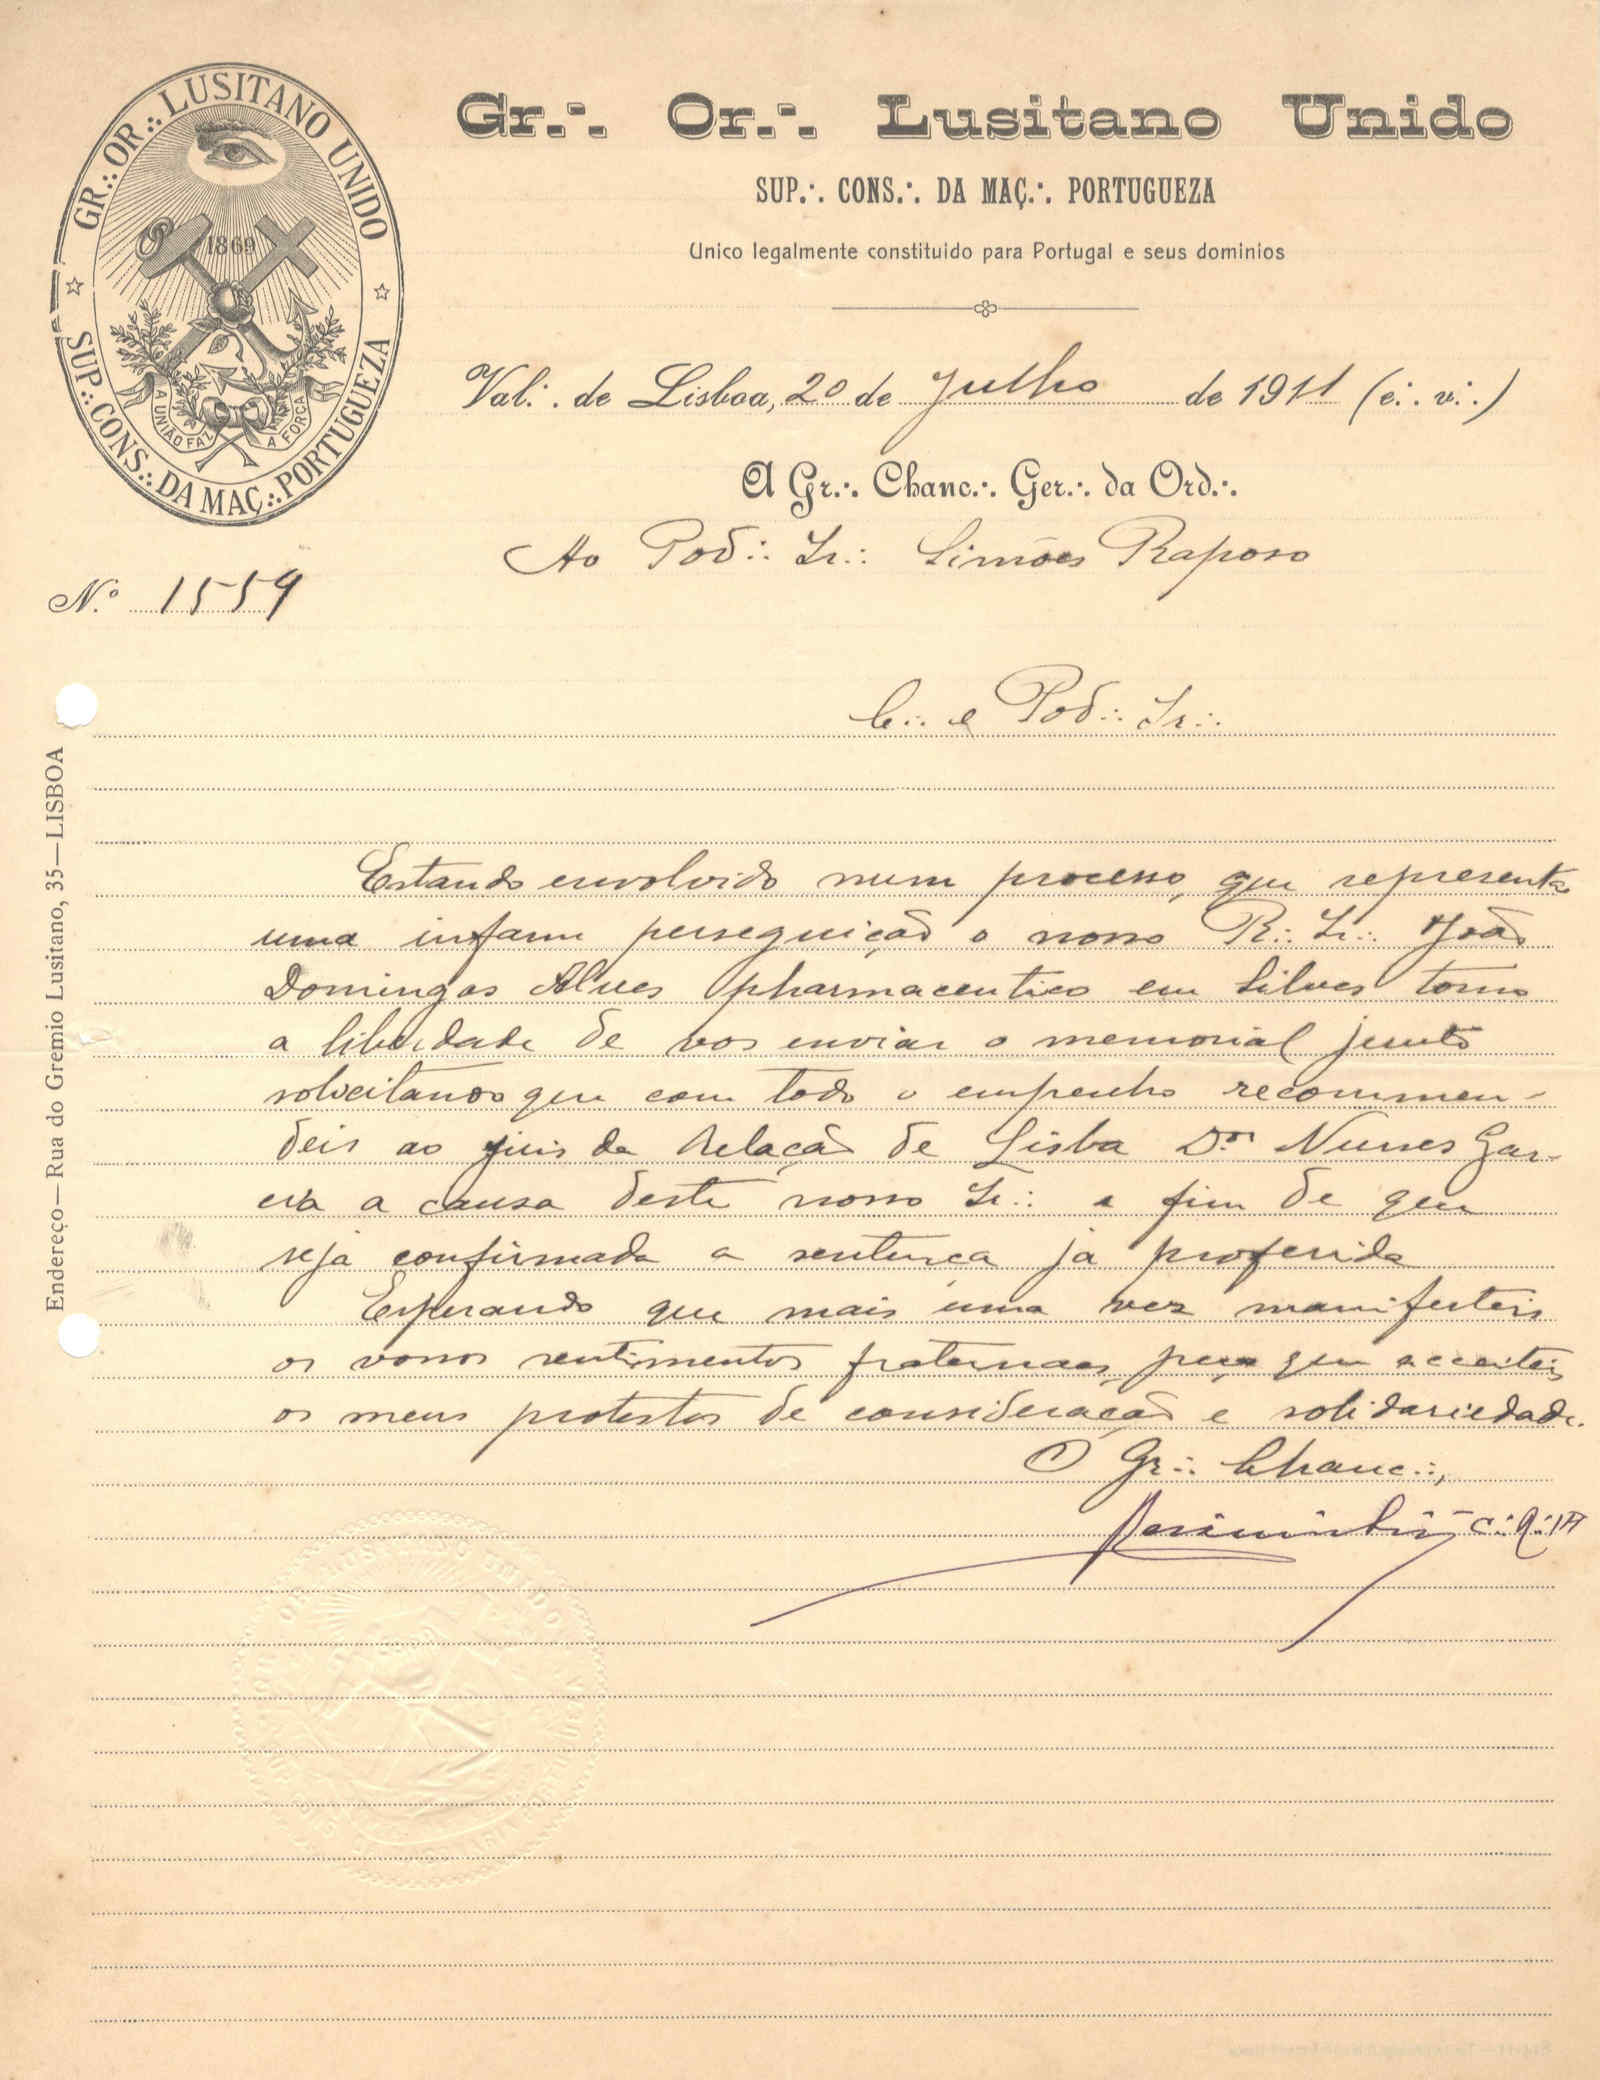 GR.·. OR.·. LUSITANO UNIDO
SUP.·. CONS.·. DA MAÇ.·. PORTUGUEZA
1869
A UNIÃO FAZ A FORÇA
Gr.·. Or.·. Lusitano Unido
SUP.·. CONS.·. DA MAÇ.·. PORTUGUEZA
Unico legalmente constituido para Portugal e seus dominios
Val.·. de Lisboa, 20 de Julho de 1911 (e.·. v.·.)
A Gr.·. Chanc.·. Ger.·. da Ord.·.
Ao Pod.·. Ir.·. Simões Raposo
N.º 1559
C.·. e Pod.·. Ir.·.
Endereço—Rua do Gremio Lusitano, 35—LISBOA
Estando envolvido num processo, que representa
uma infame perseguição o nosso R.·. Ir.·. João
Domingos Alves pharmaceutico em Silves tomo
a liberdade de vos enviar o memorial junto
solicitando que com todo o empenho recommen-
deis ao juis da Relação de Lisboa Dor Nunes Gar-
cia a causa deste nosso Ir.·. a fim de que
seja confirmada a sentença já proferida
Esperando que mais uma vez manifesteis
os vossos sentimentos fraternaes, peço que acceiteis
os meus protestos de consideração e solidariedade.
O Gr.·. Chanc.·.,